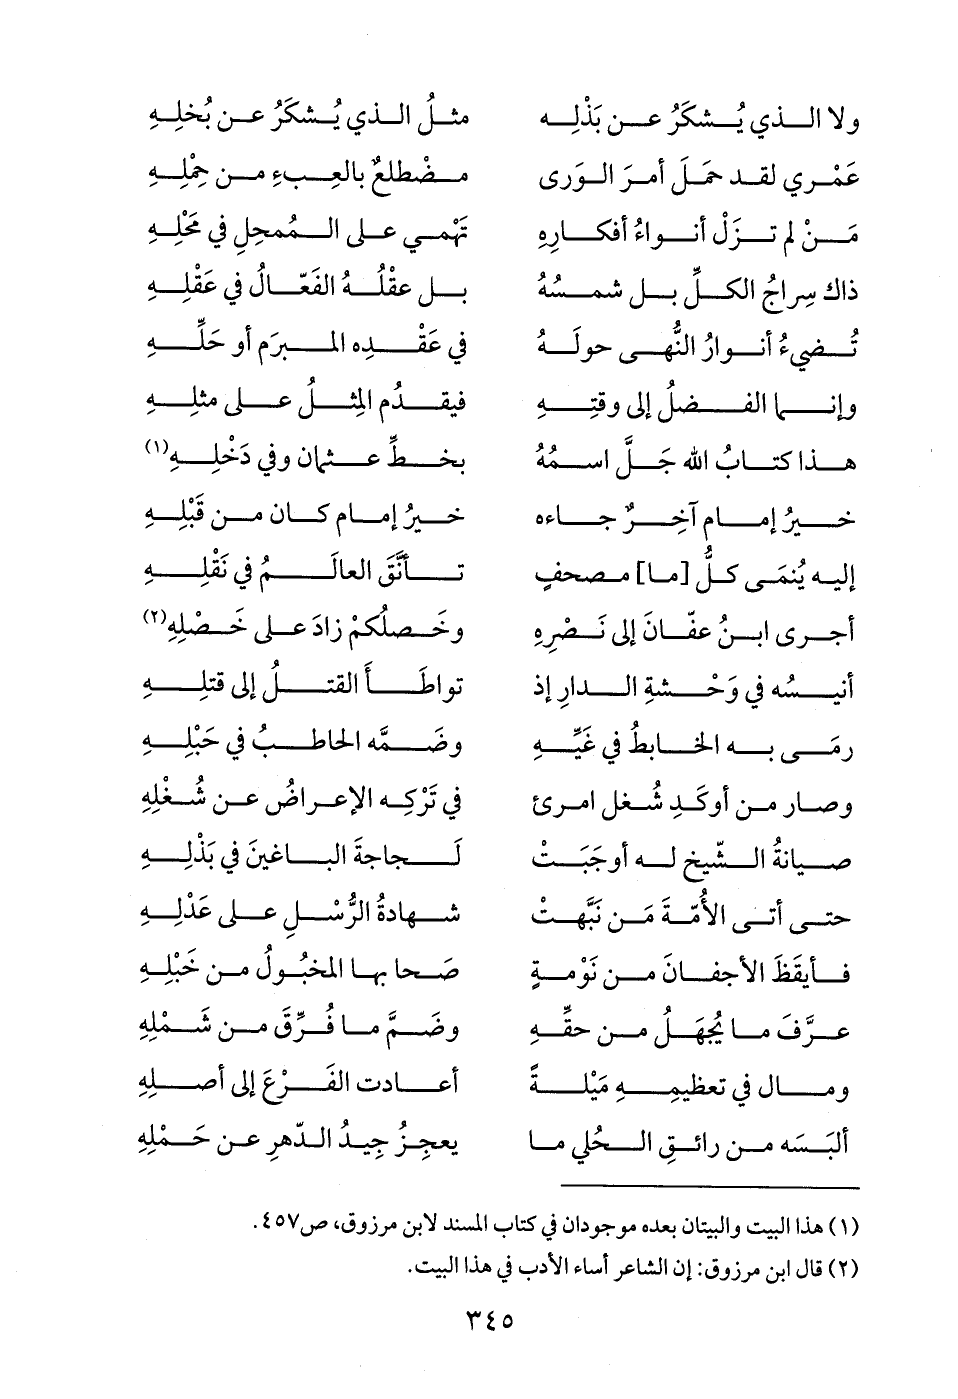 ولا الذي يُشكَرُ عن بَذْلِه مثلُ الذي يُشكَرُ عن بُخلِهِ
عَمْري لقد حَمَلَ أمرَ الورى مضْطلعٌ بالعبءِ من حِمْلِهِ
مَنْ لم تزَلْ أنواءُ أفكارِهِ تَهْمي على المُمحِلِ في مَحْلِهِ
ذاك سِراجُ الكلِّ بل شمسُهُ بل عقْلُهُ الفَعّالُ في عَقْلِهِ
تُضيءُ أنوارُ النُّهى حولَهُ في عَقْدِه المبرَمِ أو حَلِّهِ
وإنما الفضلُ إلى وقتِهِ فيقدُمِ المِثلُ على مثلِهِ
هذا كتابُ الله جَلَّ اسمُهُ بخطِّ عثمان وفي دَخْلِهِ(١)
خيرُ إمام آخِرٌ جاءه خيرُ إمامٍ كان من قَبْلِهِ
إليه يُنمَى كلُّ [ما] مصحفٍ تأنَّقَ العالَمُ في نَقْلِهِ
أجرى ابنُ عفّانَ إلى نَصْرِهِ وخَصلُكمْ زادَ على خَصْلِهِ(٢)
أنيسُه في وَحْشةِ الدارِ إذ تواطَأَ القتلُ إلى قتلِهِ
رمَى به الخابطُ في غَيِّهِ وضَمَّه الحاطبُ في حَبْلِهِ
وصار من أوكَدِ شُغلِ امرئ في تَرْكِه الإعراضُ عن شُغْلِهِ
صيانةُ الشّيخِ له أوجَبَتْ لَجاجةَ الباغينَ في بَذْلِهِ
حتى أتى الأُمّةَ مَن نَبَّهتْ شهادةُ الرُّسْلِ على عَدْلِهِ
فأيقَظَ الأجفانَ من نَوْمةٍ صَحا بها المخبُولُ من خَبْلِهِ
عرَّفَ ما يُجهَلُ من حقِّهِ وضَمَّ ما فُرِّقَ من شَمْلِهِ
ومال في تعظيمِهِ مَيْلةً أعادت الفَرْعَ إلى أصلِهِ
ألبَسَه من رائقِ الحُلي ما يعجِزُ جِيدُ الدّهرِ عن حَمْلِهِ
(١) هذا البيت والبيتان بعده موجودان في كتاب المسند لابن مرزوق، ص٤٥٧.
(٢) قال ابن مرزوق: إن الشاعر أساء الأدب في هذا البيت.
٣٤٥